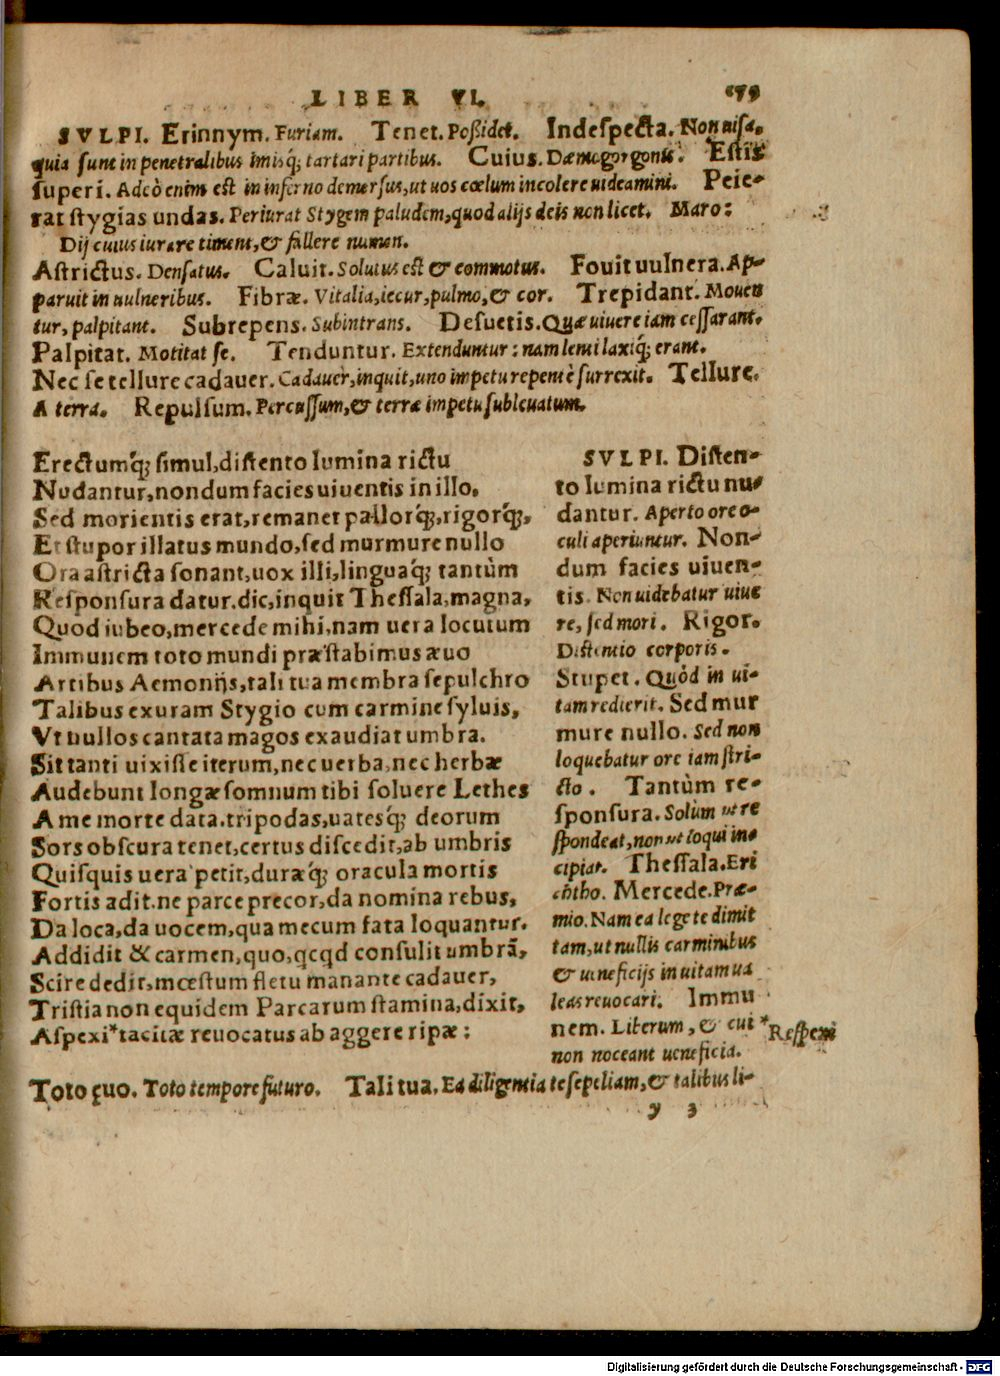 LIBER VI. 179
SVLPI. Erinnym. Furiam. Tenet. Poßidet. Indespecta. Non uisa.
quia sunt in penetralibus imisq́; tartari partibus. Cuius. Dæmogorgonis. Estis
superi. Adeò enim est in inferno demersus, ut uos cœlum incolere uideamini. Peie-
rat stygias undas. Periurat Stygem paludem, quod alijs deis non licet. Maro:
Dij cuius iurare timent, & fallere numen.
Astrictus. Densatus. Caluit. Solutus est & commotus. Fouit uulnera. Ap-
paruit in uulneribus. Fibræ. Vitalia, iecur, pulmo, & cor. Trepidant. Mouen
tur, palpitant. Subrepens. Subintrans. Desuetis. Quæ uiuere iam cessarant.
Palpitat. Motitat se. Tenduntur. Extenduntur: nam lenti laxiq́; erant.
Nec se tellure cadauer. Cadauer, inquit, uno impetu repentè surrexit. Tellure.
A terra. Repulsum. Percussum, & terræ impetu subleuatum.
Erectumq́; simul, distento lumina rictu
Nudantur, nondum facies uiuentis in illo,
Sed morientis erat, remanet pallorq́;, rigorq́;,
Et stupor illatus mundo, sed murmure nullo
Ora astricta sonant, uox illi, linguaq́; tantùm
Responsura datur. dic, inquit Thessala, magna,
Quod iubeo, mercede mihi, nam uera locutum
Immunem toto mundi præstabimus æuo
Artibus Aemonijs, tali tua membra sepulchro
Talibus exuram Stygio cum carmine syluis,
Vt nullos cantata magos exaudiat umbra.
Sit tanti uixisse iterum, nec uerba, nec herbæ
Audebunt longæ somnum tibi soluere Lethes
A me morte data. tripodas, uatesq́; deorum
Sors obscura tenet, certus discedit, ab umbris
Quisquis uera petit, duræq́; oracula mortis
Fortis adit. ne parce precor, da nomina rebus,
Da loca, da uocem, qua mecum fata loquantur.
Addidit & carmen, quo, qcqd consulit umbrã,
Scire dedit, mœstum fletu manante cadauer,
Tristia non equidem Parcarum stamina, dixit,
Aspexi* tacitæ reuocatus ab aggere ripæ:
SVLPI. Disten-
to lumina rictu nu-
dantur. Aperto ore o-
culi aperiuntur. Non-
dum facies uiuen-
tis. Non uidebatur uiue
re, sed mori. Rigor.
Distentio corporis.
Stupet. Quòd in ui-
tam redierit. Sed mur
mure nullo. Sed non
loquebatur ore iam stri-
cto. Tantùm re-
sponsura. Solùm ut re
spondeat, non ut loqui in-
cipiat. Thessala. Eri
chtho. Mercede. Præ-
mio. Nam ea lege te dimit
tam, ut nullis carminibus
& ueneficijs in uitam ua
leas reuocari. Immu
nem. Liberum, & cui
non noceant ueneficia.
*Respexi
Toto ęuo. Toto tempore futuro. Tali tua. Ea diligentia te sepeliam, & talibus li-
y 3
Digitalisierung gefördert durch die Deutsche Forschungsgemeinschaft - DFG